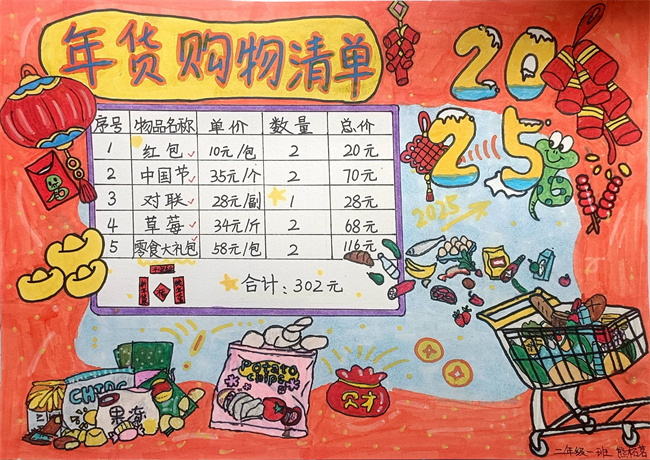 年货购物清单
20
25
序号 物品名称 单价 数量 总价
1 红包 10元/包 2 20元
2 中国节 35元/个 2 70元
3 对联 28元/副 1 28元
4 草莓 34元/斤 2 68元
5 零食大礼包 58元/包 2 116元
合计:302元
2025
CHIPS
果冻
POTATO
CHIPS
二年级一班